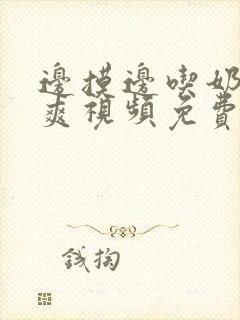 邊摸邊喫奶
爽視頻免費
錢掏